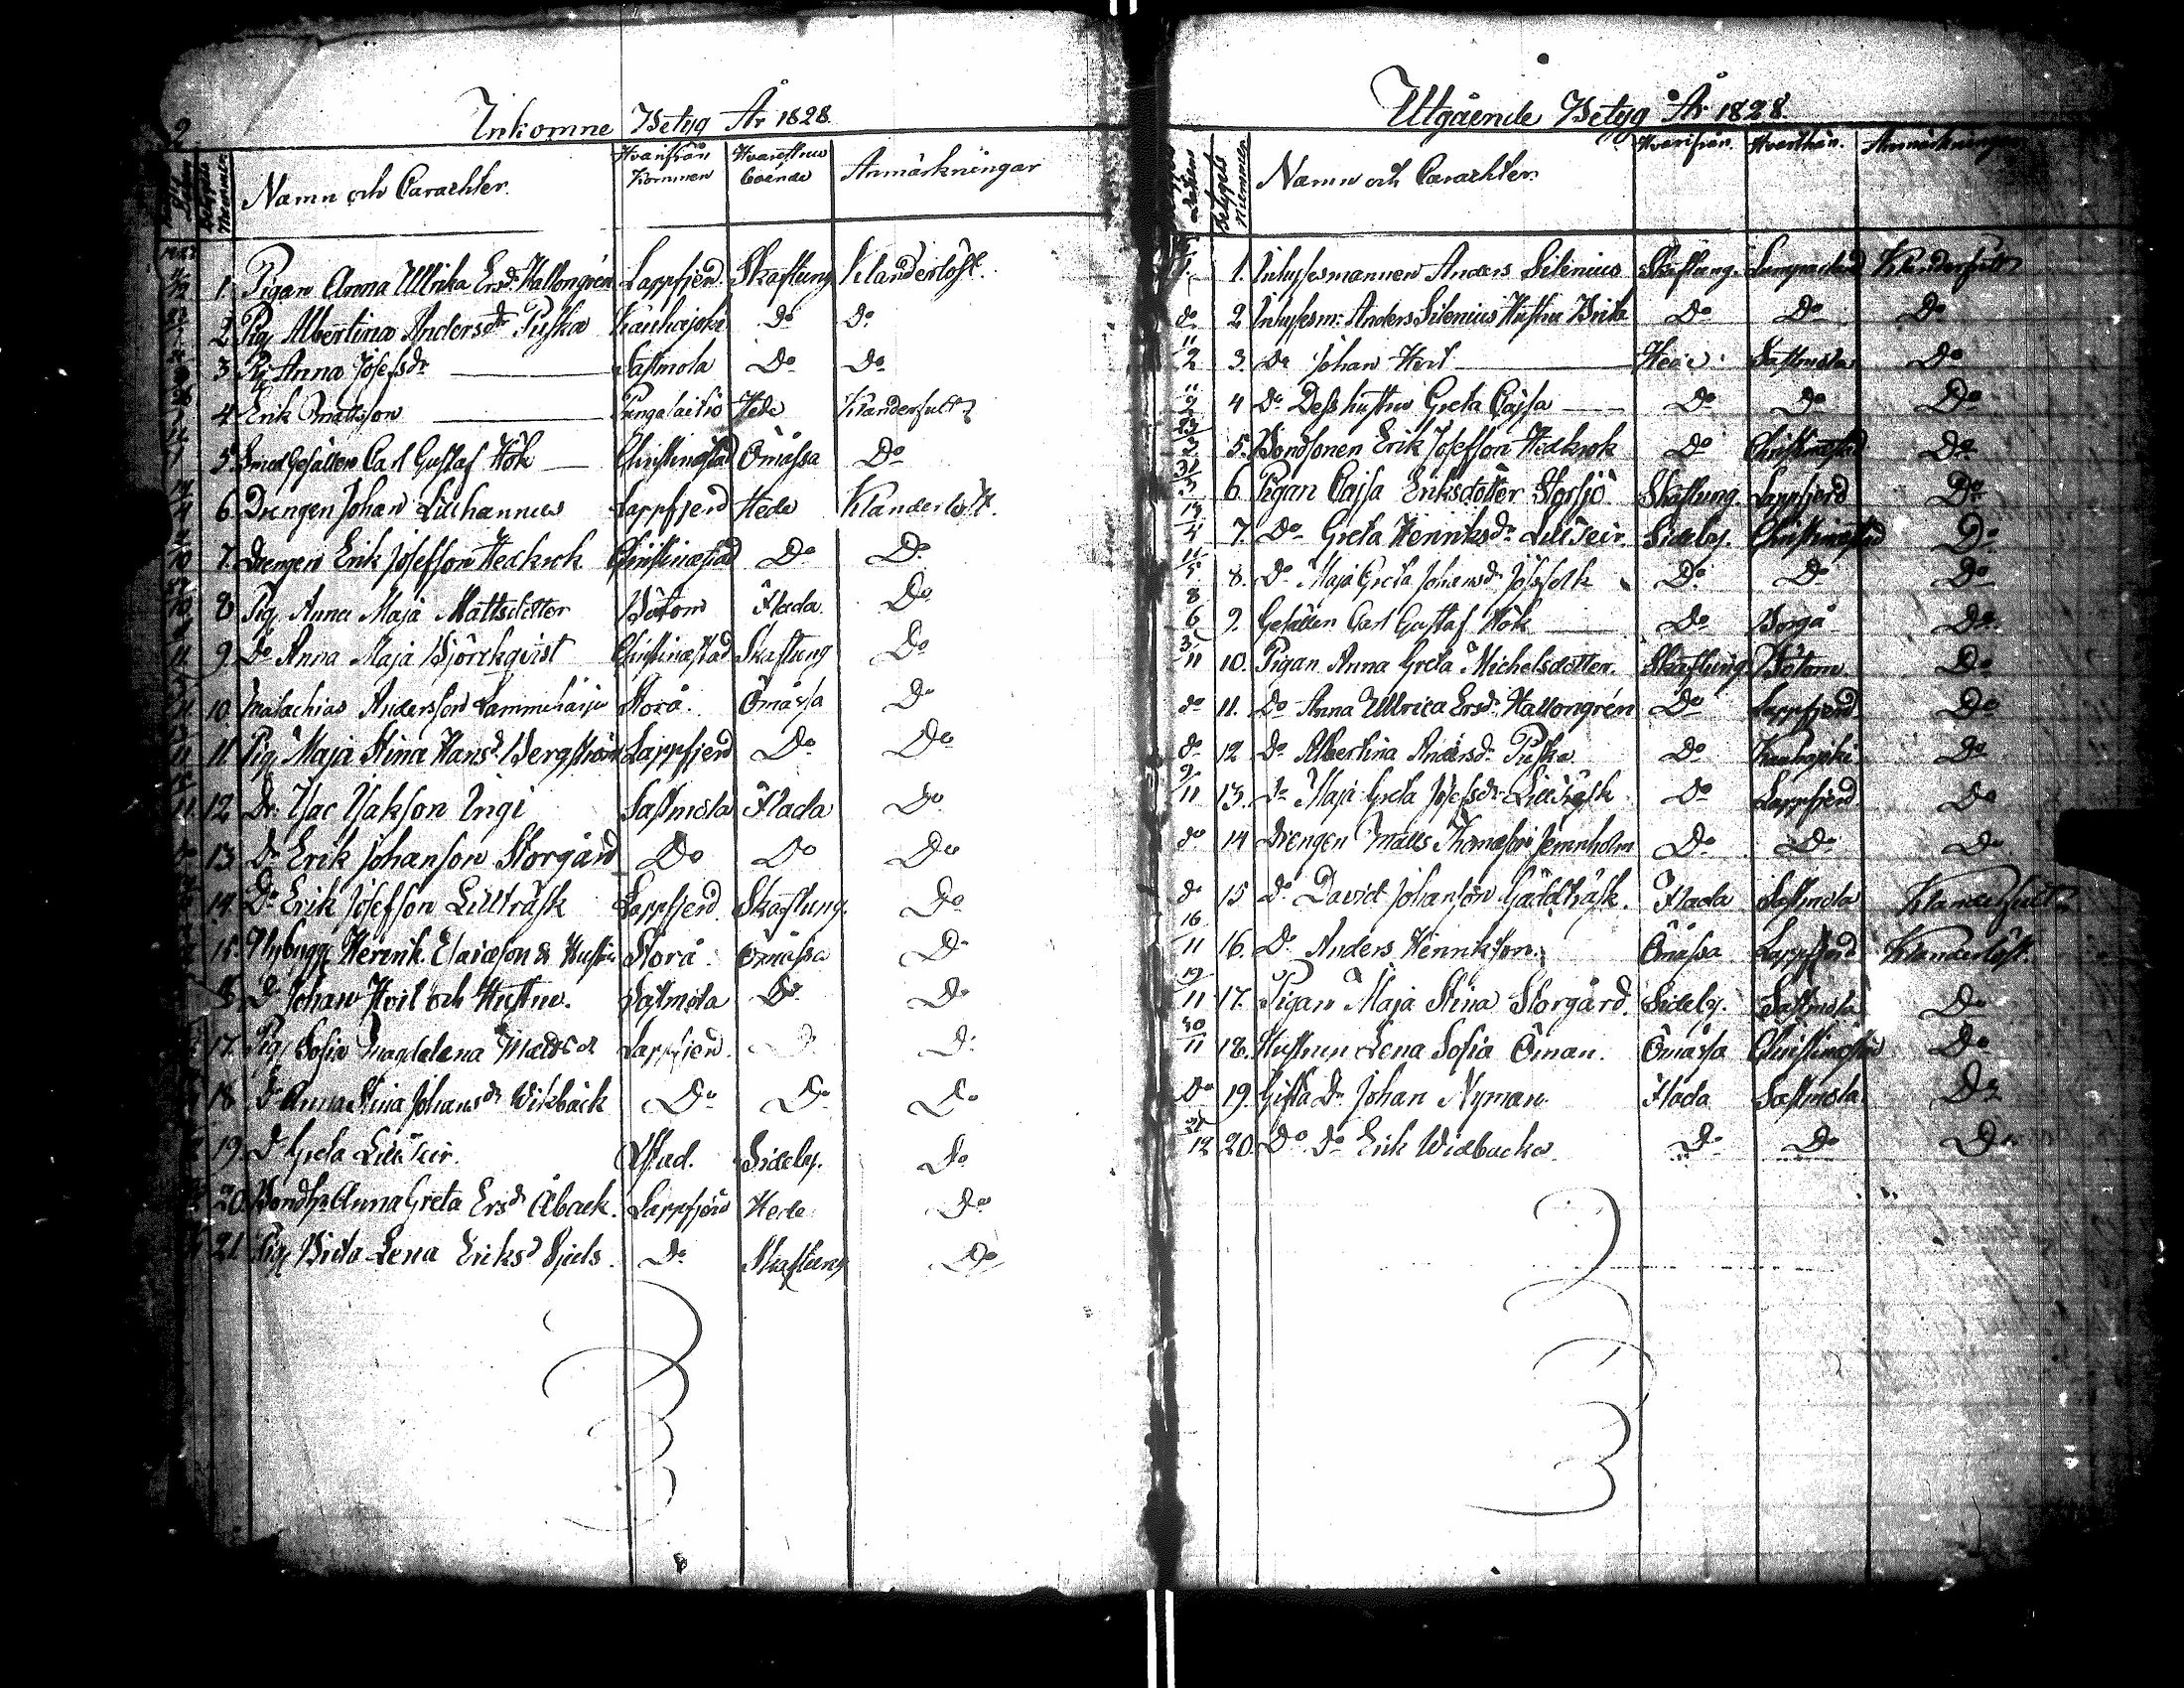 2
Inkomne Betyg År 1828.
Namn och Carachter. Hvarifrån Kommen Hvarsthus boende Anmärkningar
1. Pigan Anna Ullrika Ersdr Hallongrén Lappfjerd Skaftung Klanderlöst.
2 Pig. Albertina Andersdr Puska Kauhajoki Do Do
3 Pig Anna Josefsdr Sastmola Do Do
4 Erik Mattsson Hede Klanderfullt
5 Smed Gesällen Carl Gustaf Hök Christinestad Ömässa Do
6. Drengen Johan Lillhannus Lappfjerd Hede Klanderlöst.
7. Drengen Erik Josefsson Hedkrok Christinestad Do Do
8 Pig. Anna Maja Mattsdotter Bötom Flada Do
9. Do Anna Maja Björckqvist Christinestad Skaftung Do
10. Malachias Andersson Lammiharju Storå. Ömässa Do
11 Pig. Maja Stina Hansd. Bergström Lappfjerd Do Do
12 Dr. Isac Isakson Ingi Sastmola Flada Do
13 Do Erik Johanson Storgård Do Do Do
14. Do Erik Josefsson Lillträsk Lappfjerd Skaftung. Do
15. Nybygg. Henrik Elaiæson & Hustru Storå. Ömässa Do
Do Johan Hoil och Hustru. Sastmola Do Do
17. Pig. Sofia Magdalena Lappfjerd. Do Do
18 Do Anna Stina Johansdr Wikback Do Do Do
19. Do Greta Lillteir. Xstad. Sideby. Do
20. Bondh. Anna Greta Ersdr Åback. Lappfjerd Hede Do
21. Pig. Brita Lena Eriksd Sjels. Do Skaftung Do
Utgående Betyg År 1828.
Betygets Nummer Namn och Carachter. Hvarifrån. Hvarthän. Anmärkningar
1. Inhysesmannen Anders Silenius Skaftung. Klanderfullt
do 2 Inhysesm: Anders Silenius Hustru Brita Do Do Do
11/2 3. Do Johan Hoil Hede. Sastmola Do
11/2 4 Do Dess hustru Greta Cajsa Do Do Do
23/3 5. Bondsonen Erik Josefsson Hedkrok Do Christinestad Do
31/3 6 Pigan Cajsa Eriksdotter Storsjö Skaftung. Lappfjerd Do
13/4 7. Do Greta Henriksdr Lillteir. Sideby. Christinestad Do
11/5 8. Do Maja Greta Johansdr Josfolk Do Do Do
8/6 9. Gesällen Carl Gustaf Hök Do Borgå Do
3/11 10. Pigan Anna Greta Michelsdotter. Skaftung Bötom Do
do 11. Do Anna Ullrica Ersdr Hallongrén Do Lappfjerd Do
do 12 Do Albertina Andersdr Puska Do Kauhajoki Do
9/11 13. Do Maja Greta Josefsdr Lillträsk Do Lappfjerd Do
do 14 Drengen Matts Thomasson Jernholm Do Do Do
do 15 Do David Johanson Gäddträsk. Flada Sastmola Klanderfullt
16/11 16. Do Anders Henrikson. Ömässa Lappfjerd Klanderlöst.
19/11 17. Pigan Maja Stina Storgård. Sideby. Sastmola Do
30/11 18. Hustrun Lena Sofia Öman. Ömässa Christinestad Do
Do 19. Gifta Dr. Johan Nyman Flada Sastmola. Do
21/12 20. Do Do Erik Widbacka Do Do Do